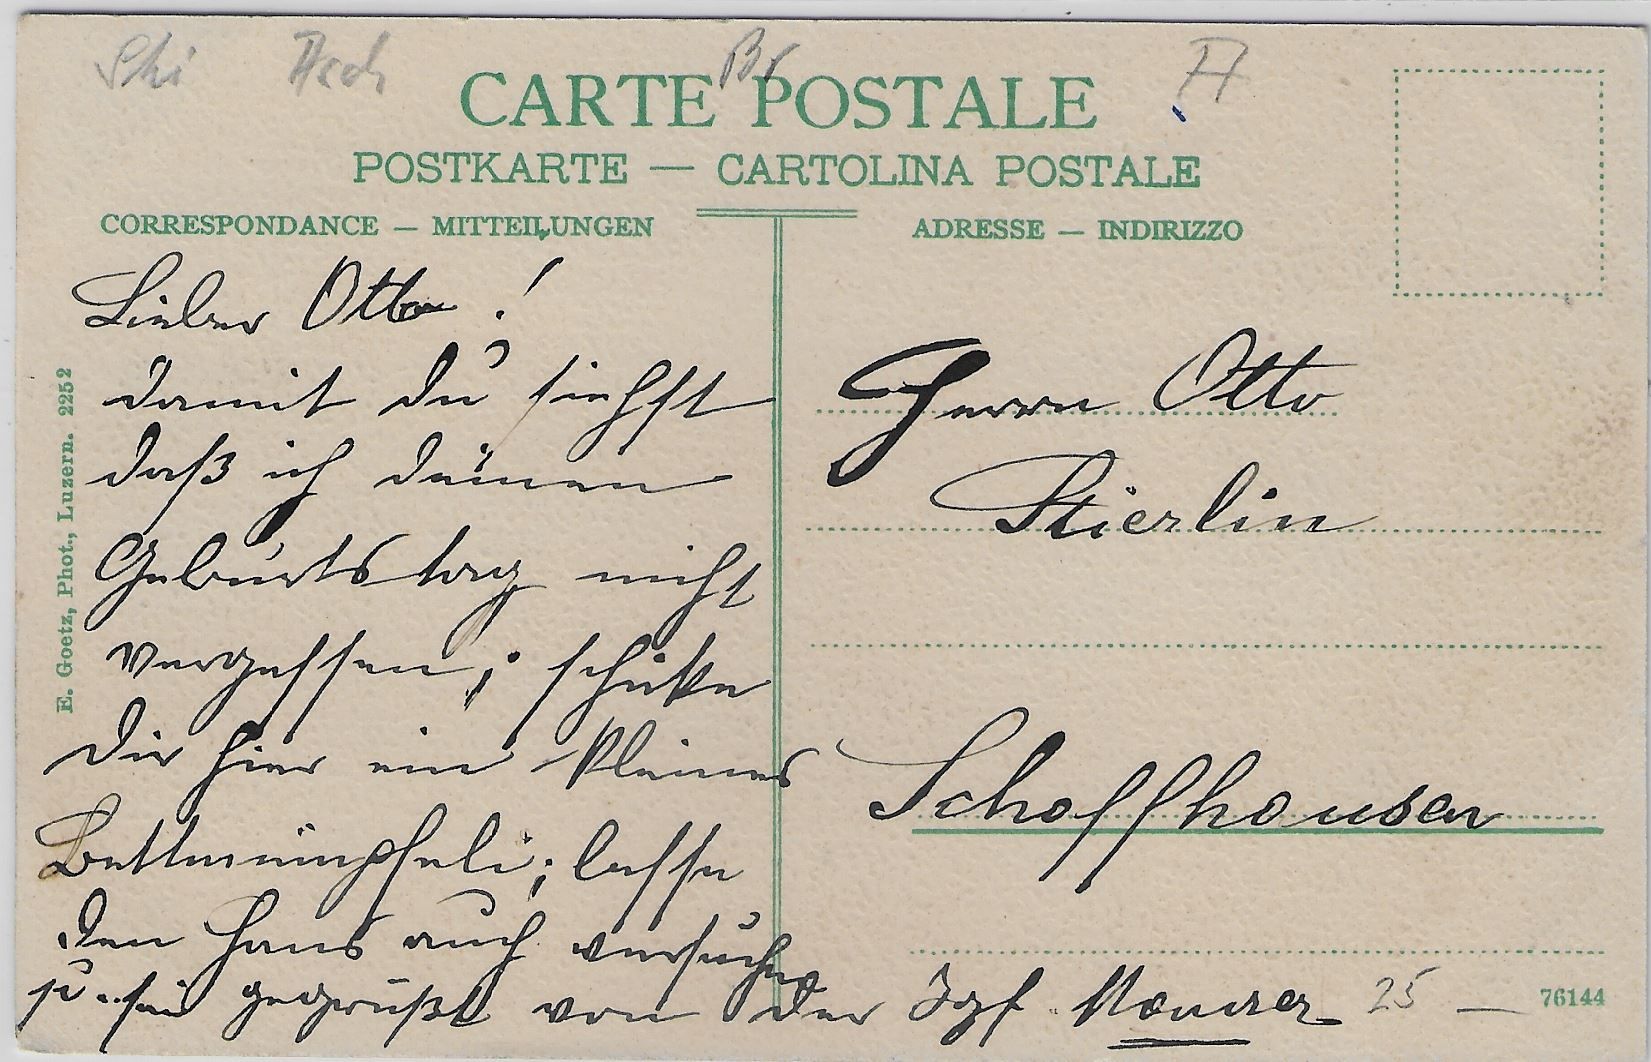 Ski Asch Br A
CARTE POSTALE
POSTKARTE — CARTOLINA POSTALE
CORRESPONDANCE — MITTEILUNGEN
ADRESSE — INDIRIZZO
E. Goetz, Phot., Luzern. 2252
Lieber Otto!
damit du siehst
daß ich deinen
Geburtstag nicht
vergessen, schicke
Dir hier ein kleines
Bettmümpfeli; lasse
den Hans auch versuchen
u. sei gegrüßt von der Igf. Maurer
Herrn Otto
Stierlin
Schaffhausen
25 —
76144